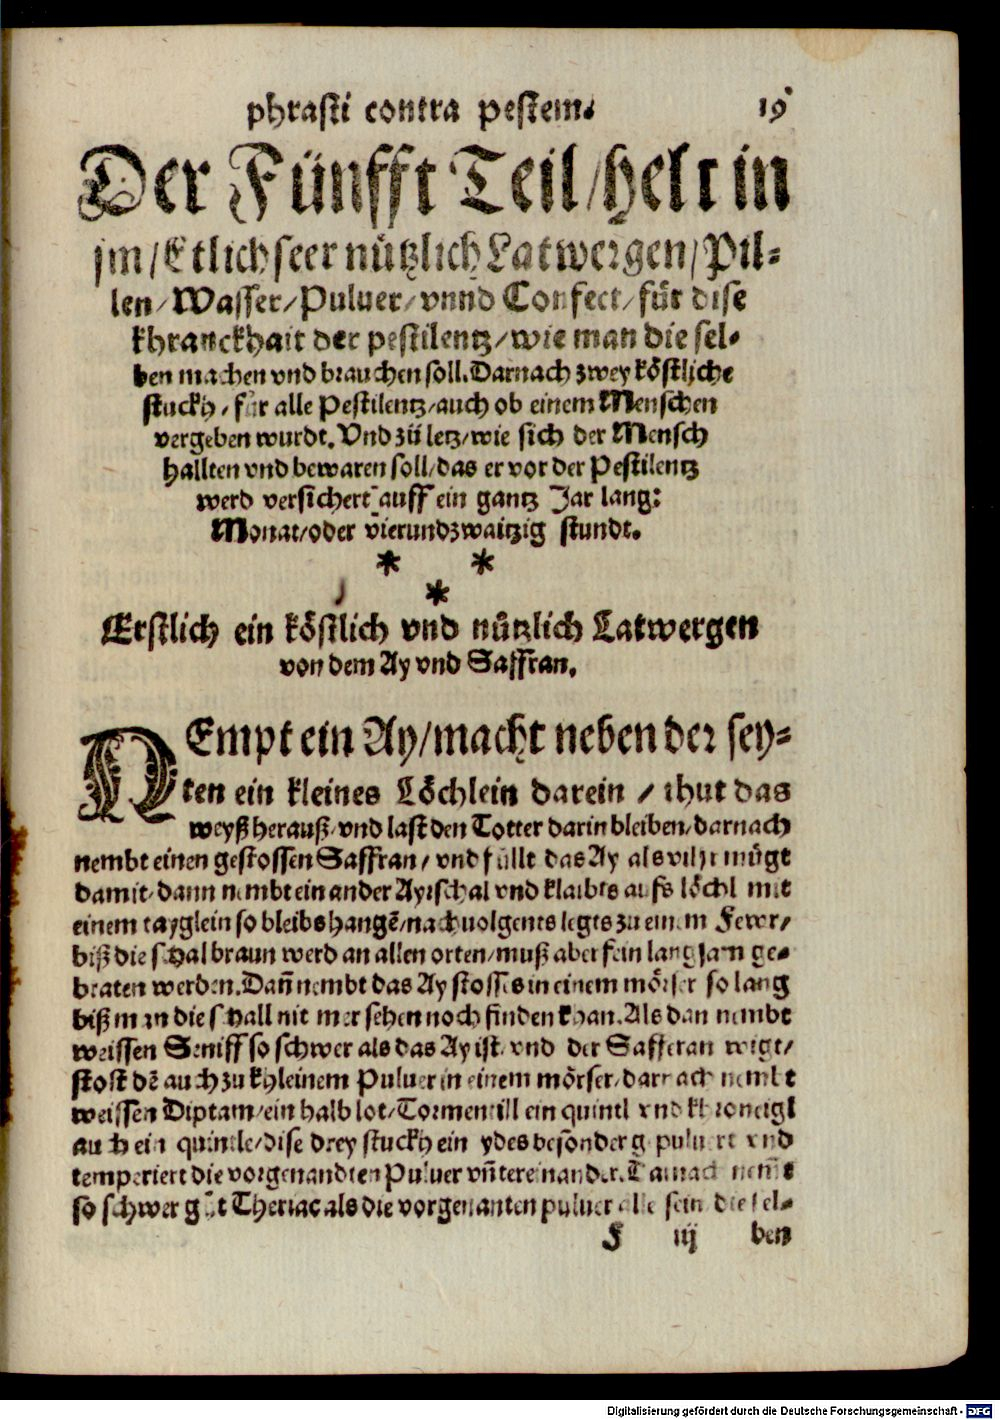 phrasti contra pestem. 19
Der Fünfft Teil/helt in
jm/Etlich seer nützlich Latwergen/Pil-
len/Wasser/Puluer/vnnd Confect/für dise
khranckhait der pestilentz/wie man die sel-
ben machen vnd brauchen soll. Darnach zwey köstliche
stuckh/für alle Pestilentz/auch ob einem Menschen
vergeben wurdt. Vnd zů letz/wie sich der Mensch
hallten vnd bewaren soll/das er vor der Pestilentz
werd versichert auff ein gantz Jar lang:
Monat/oder vierundzwaitzig stundt.
* *
*
Erstlich ein köstlich vnd nützlich Latwergen
von dem Ay vnd Saffran.
NEmpt ein Ay/macht neben der sey-
ten ein kleines Löchlein darein/thut das
weyß herauß/vnd last den Totter darin bleiben/darnach
nembt einen gestossen Saffran/vnd füllt das Ay als vil jr mügt
damit/dann nembt ein ander Ayrschal vnd klaibts aufs löchl mit
einem tayglein so bleibs hangē/nachuolgents legts zu einem Fewr/
biß die schal braun werd an allen orten/muß aber fein langsam ge-
braten werden. Dañ nembt das Ay stosses in einem mörser so lang
biß man die schall nit mer sehen noch finden khan. Als dan nembt
weissen Seniff so schwer als das Ay ist/vnd der Safferan wigt/
stost dē auch zu khleinem Puluer in einem mörser/darnach nembt
weissen Diptam/ein halb lot/Tormentill ein quintl vnd khroneigl
auch ein quintle/dise drey stuckh ein ydes besonder gepuluert vnd
temperiert die vorgenandten Puluer vñtereinander. Darnach nembt
so schwer gůt Theriac als die vorgenanten puluer alle sein die sel-
F iij ben
Digitalisierung gefördert durch die Deutsche Forschungsgemeinschaft - DFG